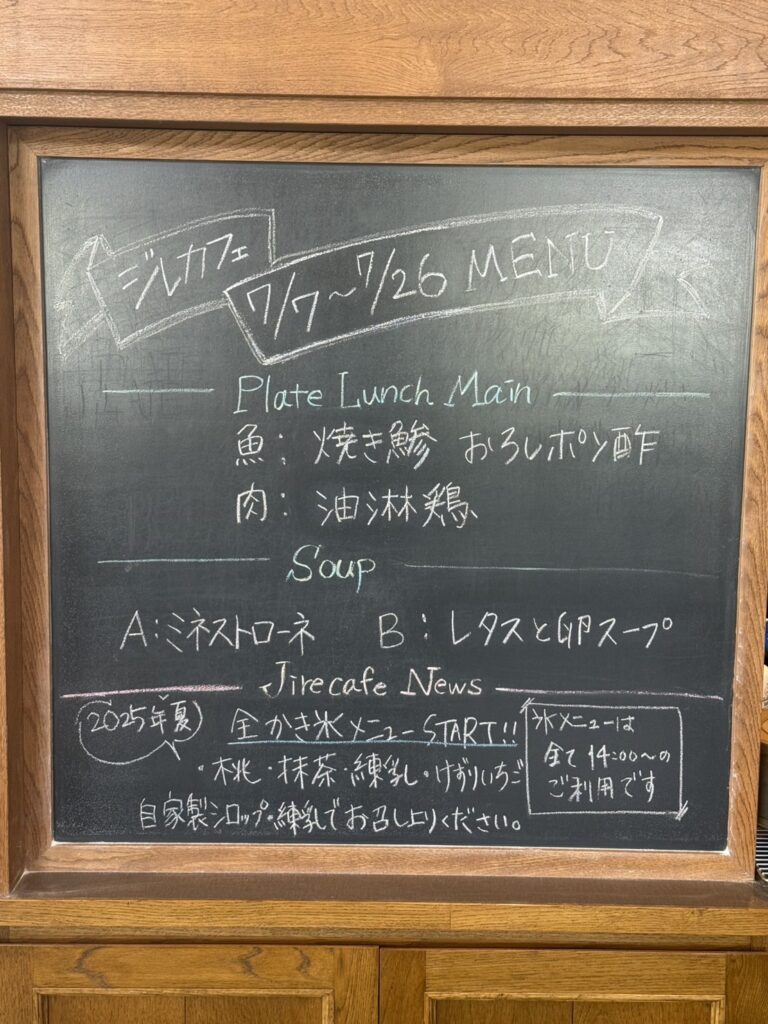 ジルカフェ
7/7〜7/26 MENU
Plate Lunch Main
魚: 焼き鯵 おろしポン酢
肉: 油淋鶏
Soup
A:ミネストローネ B:レタスと卵スープ
Jirecafe News
2025年夏
全かき氷メニューSTART!!
・桃・抹茶・練乳・けずりいちご
自家製シロップ・練乳でお召し上りください。
氷メニューは
全て14:00〜の
ご利用です